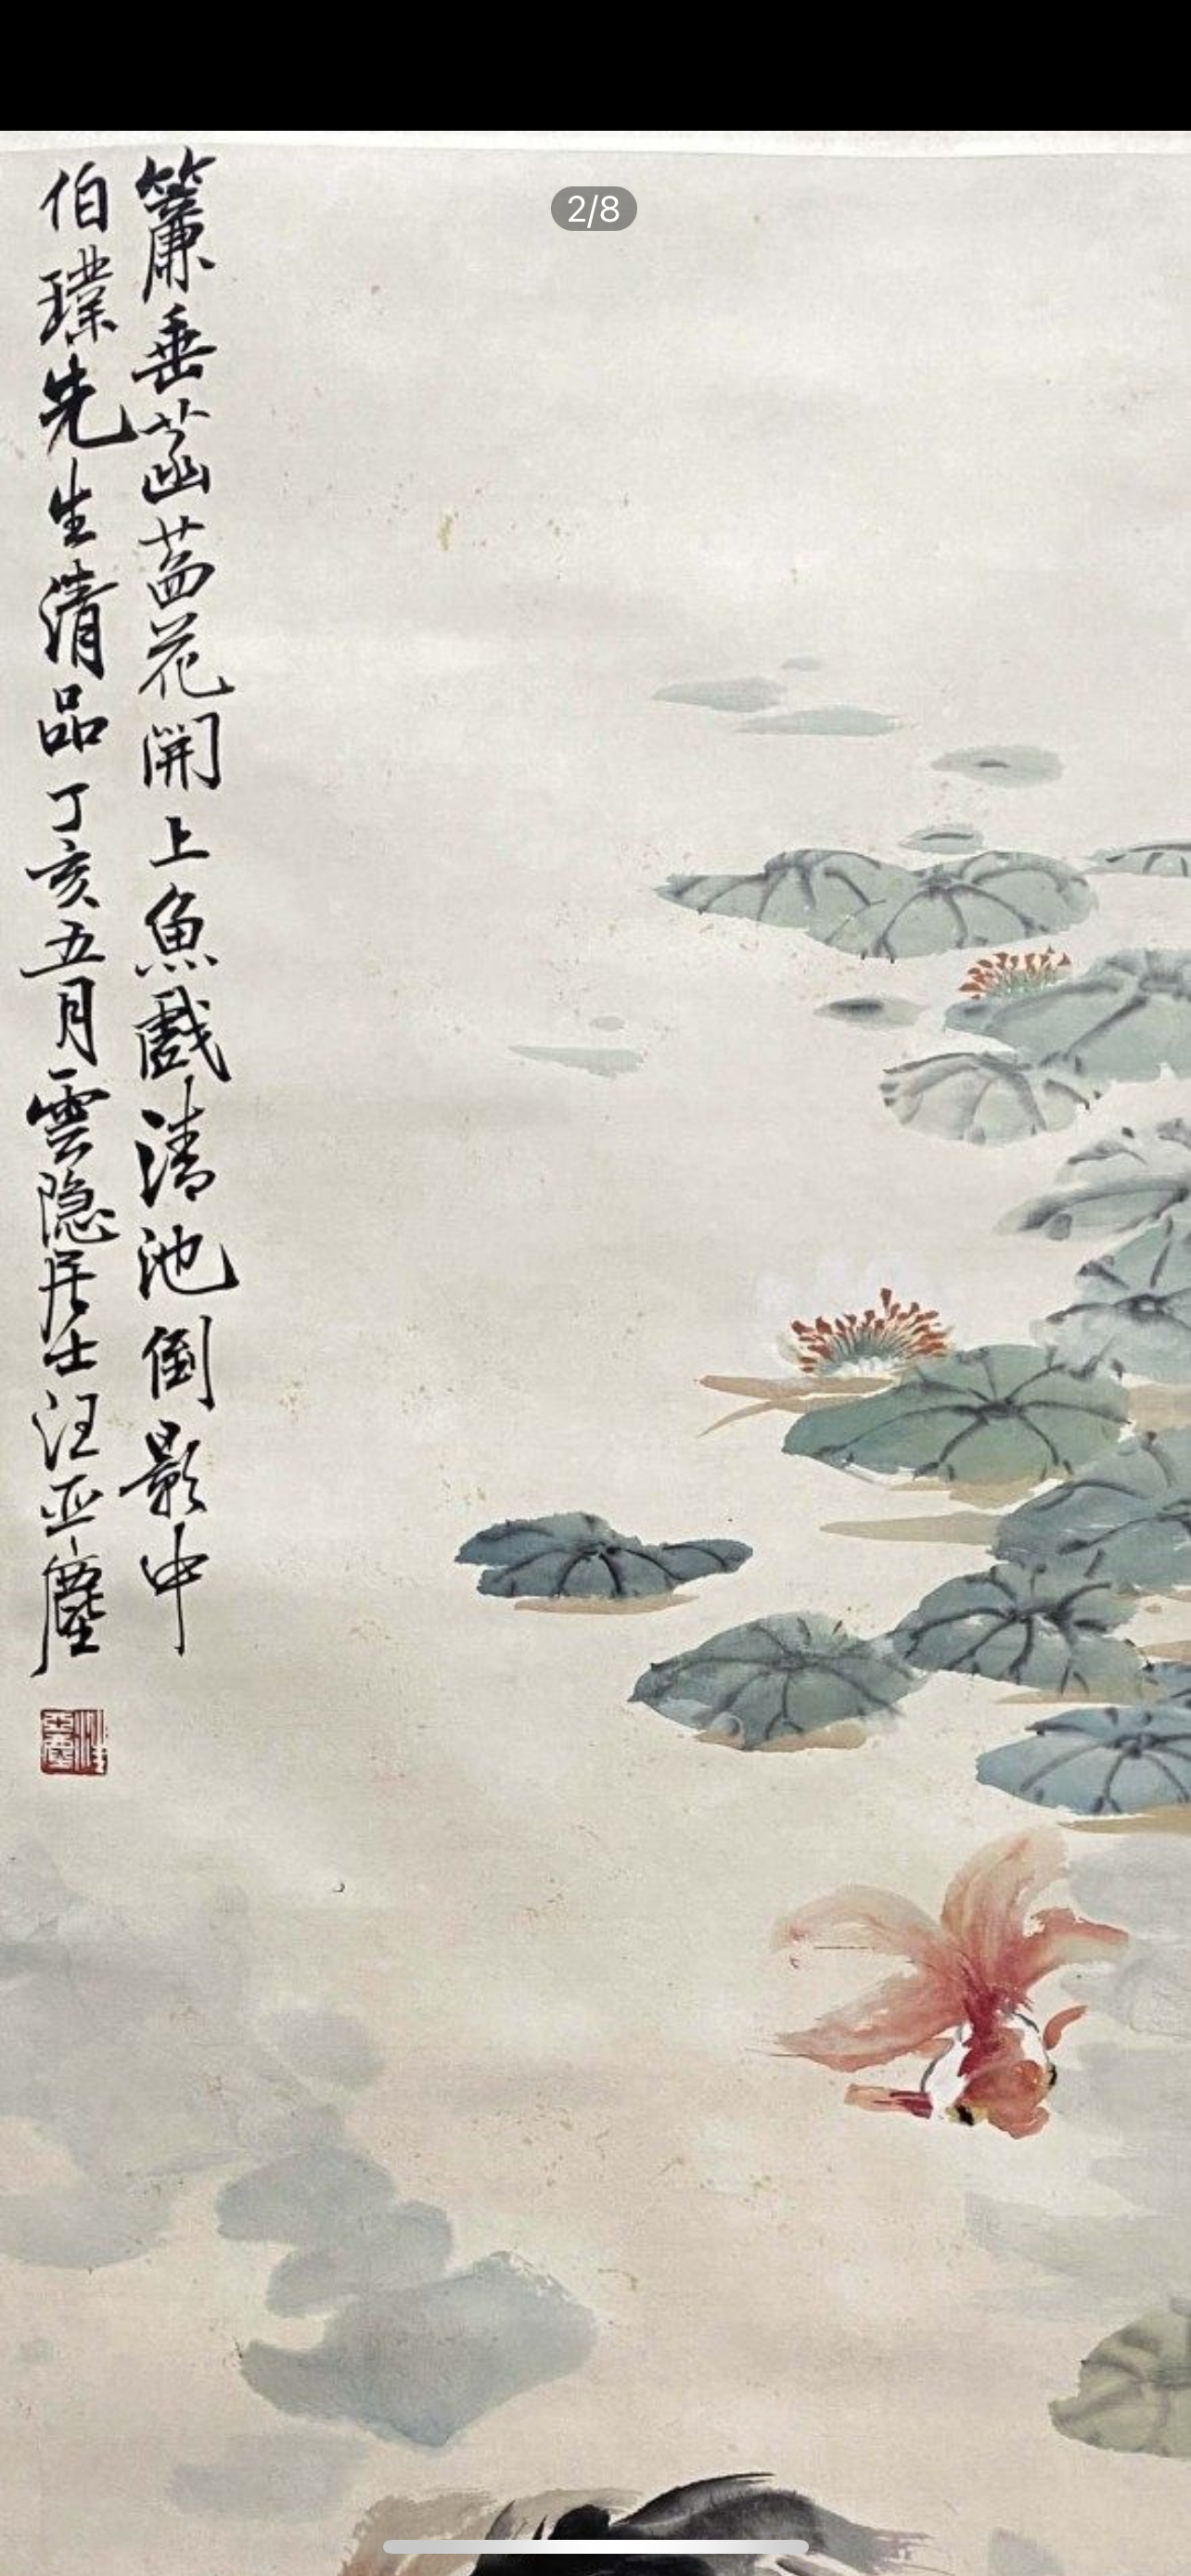 2/8
簾垂菡萏花開上魚戲清池倒影中
伯璞先生清品丁亥五月雲隐居士汪亞塵
汪亞塵